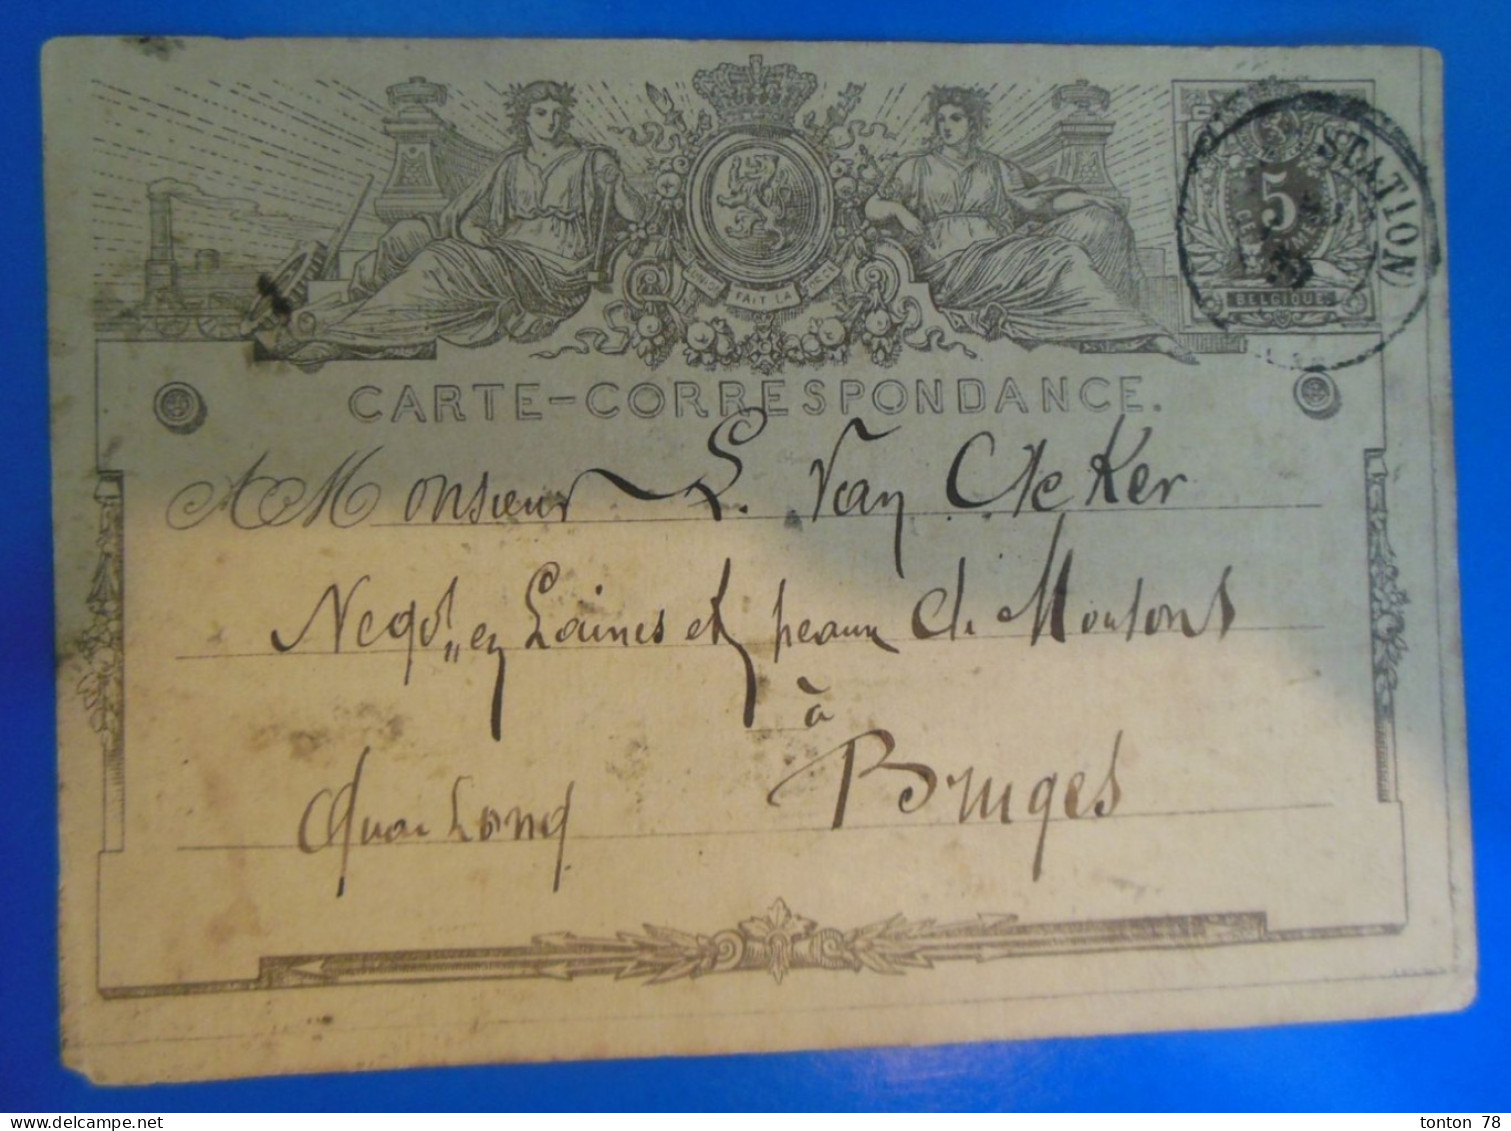 STATION)
5
BELGIQUE
FAIT LA
CARTE-CORRESPONDANCE.
A Monsieur L. Van Ackeker
Negot en Laines et peaux de Moutons
à
Quai Long Bruges
www.delcampe.net
tonton_78